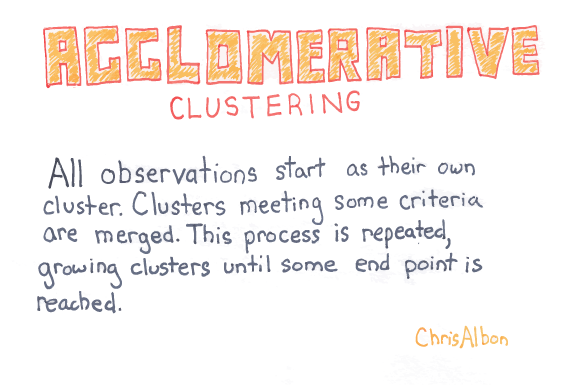 AGGLOMERATIVE
CLUSTERING
All observations start as their own
cluster. Clusters meeting some criteria
are merged. This process is repeated,
growing clusters until some end point is
reached.
ChrisAlbon